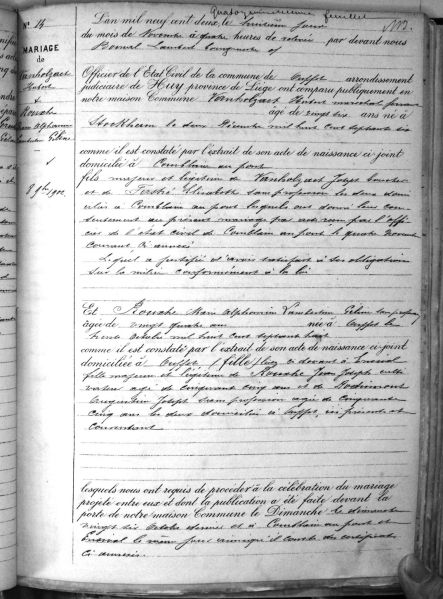 Quatorzième feuillet
N° 14
MARIAGE
de
Vanholzaet
Hubert
&
Rouche
Marie Alphonsine
Lambertine Céline
8 9bre 1902
L'an mil neuf cent deux, le huitième jour
du mois de Novembre à quatre heures de relevée par devant nous
Lambert Bourgmestre
Officier de l'Etat Civil de la commune de Ouffet arrondissement
judiciaire de Huy province de Liège ont comparu publiquement en
notre maison Commune Vanholzaet Hubert maréchal ferrant
âgé de vingt six ans né à
Stockheim le deux Décembre mil huit cent septante six
comme il est constaté par l'extrait de son acte de naissance ci-joint
domicilié à Comblain au pont
fils majeur et légitime de Vanholzaet Joseph
et de Elisabeth sans profession les deux domi
ciliés à Comblain au pont lesquels ont donné leur con
sentement au présent mariage par acte reçu par l'offi
cier de l'état civil de Comblain au pont le quatre Novembre
courant, ci annexé
Lequel a justifié avoir satisfait à ses obligations
sur la milice conformément à la loi
Et Rouche Marie Alphonsine Lambertine Céline sans profession
âgée de vingt quatre ans née à Ouffet le
trente octobre mil huit cent septante huit
comme il est constaté par l'extrait de son acte de naissance ci-joint
domiciliée à Ouffet, ci devant à Ensival
fille majeure et légitime de Rouche Jean Joseph culti
vateur âgé de cinquante cinq ans et de
Joseph sans profession âgée de cinquante
cinq ans les deux domiciliés à Ouffet, ici présents et
consentant
lesquels nous ont requis de procéder à la célébration du mariage
projeté entre eux et dont la publication a été faite devant la
porte de notre maison Commune le Dimanche
vingt six Octobre dernier et à Comblain au pont et
Ensival le même jour ainsi qu'il conste des certificats
ci annexés.